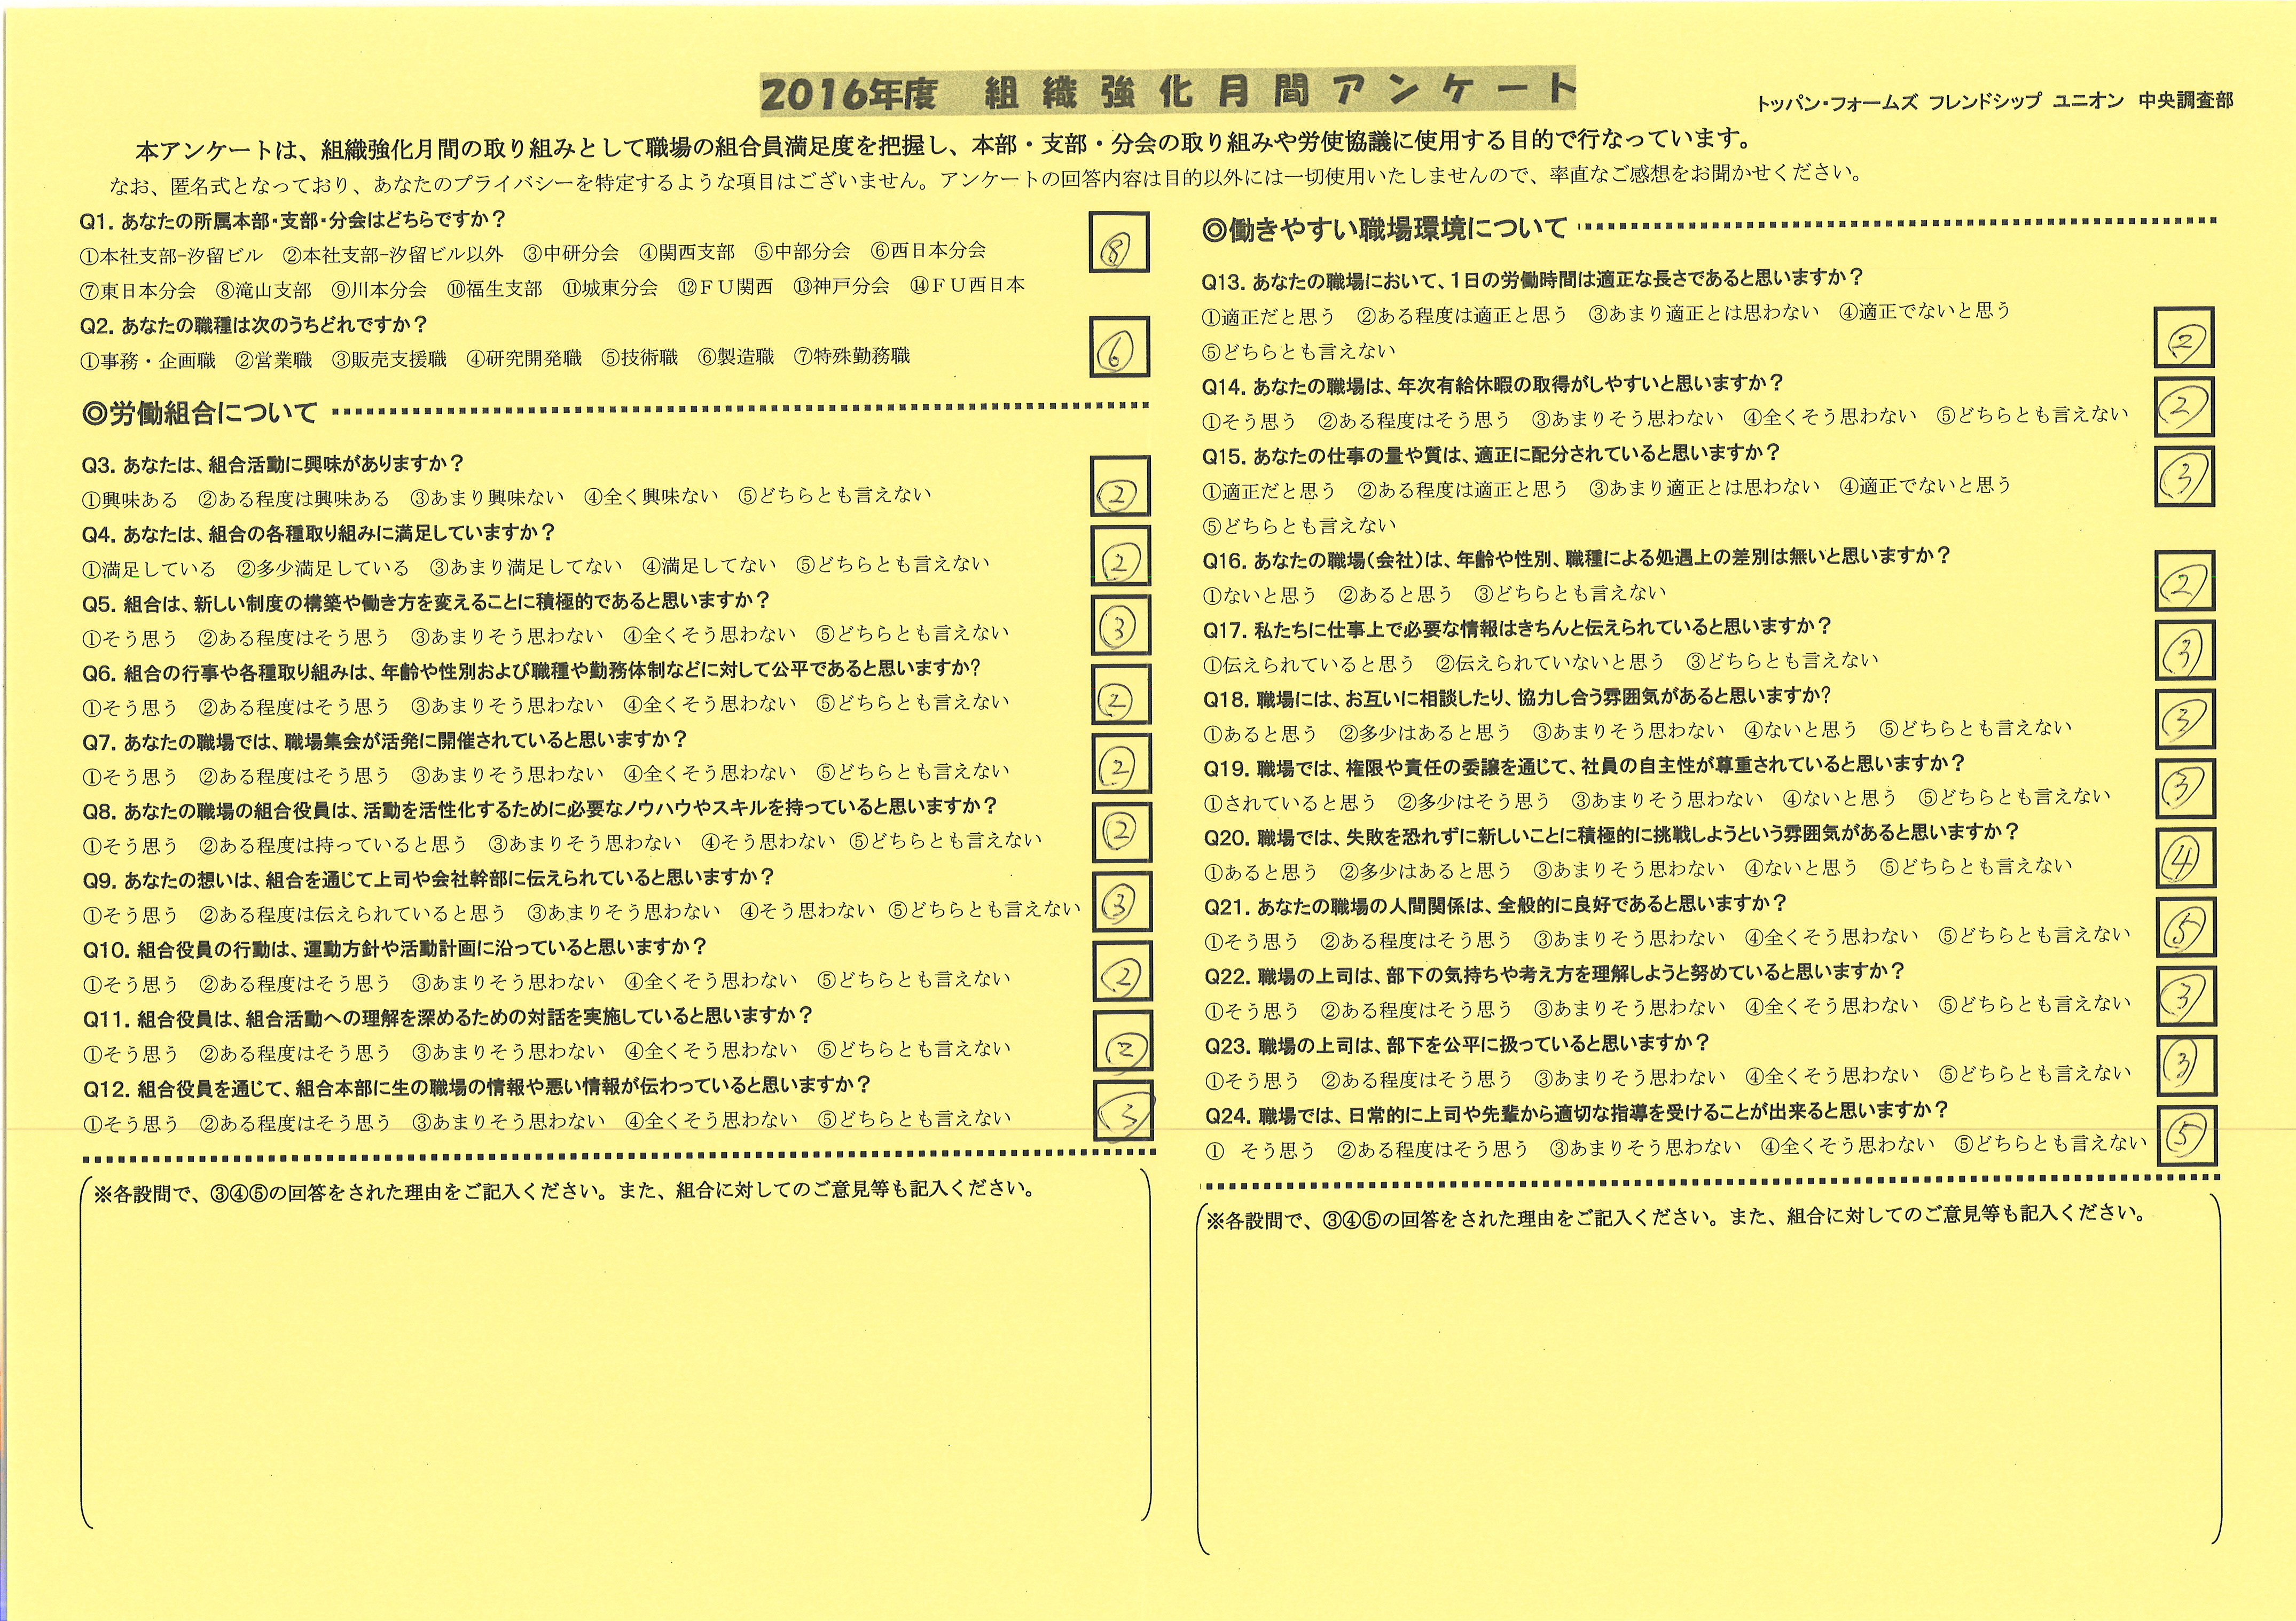 2016年度 組織強化月間アンケート
トッパン・フォームズ フレンドシップ ユニオン 中央調査部
本アンケートは、組織強化月間の取り組みとして職場の組合員満足度を把握し、本部・支部・分会の取り組みや労使協議に使用する目的で行なっています。
なお、匿名式となっており、あなたのプライバシーを特定するような項目はございません。アンケートの回答内容は目的以外には一切使用いたしませんので、率直なご感想をお聞かせください。
Q1. あなたの所属本部・支部・分会はどちらですか？
①本社支部−汐留ビル ②本社支部−汐留ビル以外 ③中研分会 ④関西支部 ⑤中部分会 ⑥西日本分会
⑧
⑦東日本分会 ⑧滝山支部 ⑨川本分会 ⑩福生支部 ⑪城東分会 ⑫ＦＵ関西 ⑬神戸分会 ⑭ＦＵ西日本
Q2. あなたの職種は次のうちどれですか？
①事務・企画職 ②営業職 ③販売支援職 ④研究開発職 ⑤技術職 ⑥製造職 ⑦特殊勤務職
⑥
◎労働組合について
Q3. あなたは、組合活動に興味がありますか？
①興味ある ②ある程度は興味ある ③あまり興味ない ④全く興味ない ⑤どちらとも言えない
②
Q4. あなたは、組合の各種取り組みに満足していますか？
①満足している ②多少満足している ③あまり満足してない ④満足してない ⑤どちらとも言えない
②
Q5. 組合は、新しい制度の構築や働き方を変えることに積極的であると思いますか？
①そう思う ②ある程度はそう思う ③あまりそう思わない ④全くそう思わない ⑤どちらとも言えない
③
Q6. 組合の行事や各種取り組みは、年齢や性別および職種や勤務体制などに対して公平であると思いますか？
①そう思う ②ある程度はそう思う ③あまりそう思わない ④全くそう思わない ⑤どちらとも言えない
②
Q7. あなたの職場では、職場集会が活発に開催されていると思いますか？
①そう思う ②ある程度はそう思う ③あまりそう思わない ④全くそう思わない ⑤どちらとも言えない
②
Q8. あなたの職場の組合役員は、活動を活性化するために必要なノウハウやスキルを持っていると思いますか？
①そう思う ②ある程度は持っていると思う ③あまりそう思わない ④そう思わない ⑤どちらとも言えない
②
Q9. あなたの想いは、組合を通じて上司や会社幹部に伝えられていると思いますか？
①そう思う ②ある程度は伝えられていると思う ③あまりそう思わない ④そう思わない ⑤どちらとも言えない
③
Q10. 組合役員の行動は、運動方針や活動計画に沿っていると思いますか？
①そう思う ②ある程度はそう思う ③あまりそう思わない ④全くそう思わない ⑤どちらとも言えない
②
Q11. 組合役員は、組合活動への理解を深めるための対話を実施していると思いますか？
①そう思う ②ある程度はそう思う ③あまりそう思わない ④全くそう思わない ⑤どちらとも言えない
②
Q12. 組合役員を通じて、組合本部に生の職場の情報や悪い情報が伝わっていると思いますか？
①そう思う ②ある程度はそう思う ③あまりそう思わない ④全くそう思わない ⑤どちらとも言えない
③
※各設問で、③④⑤の回答をされた理由をご記入ください。また、組合に対してのご意見等も記入ください。
◎働きやすい職場環境について
Q13. あなたの職場において、1日の労働時間は適正な長さであると思いますか？
①適正だと思う ②ある程度は適正と思う ③あまり適正とは思わない ④適正でないと思う
②
⑤どちらとも言えない
Q14. あなたの職場は、年次有給休暇の取得がしやすいと思いますか？
①そう思う ②ある程度はそう思う ③あまりそう思わない ④全くそう思わない ⑤どちらとも言えない
②
Q15. あなたの仕事の量や質は、適正に配分されていると思いますか？
①適正だと思う ②ある程度は適正と思う ③あまり適正とは思わない ④適正でないと思う
③
⑤どちらとも言えない
Q16. あなたの職場（会社）は、年齢や性別、職種による処遇上の差別は無いと思いますか？
①ないと思う ②あると思う ③どちらとも言えない
②
Q17. 私たちに仕事上で必要な情報はきちんと伝えられていると思いますか？
①伝えられていると思う ②伝えられていないと思う ③どちらとも言えない
③
Q18. 職場には、お互いに相談したり、協力し合う雰囲気があると思いますか？
①あると思う ②多少はあると思う ③あまりそう思わない ④ないと思う ⑤どちらとも言えない
③
Q19. 職場では、権限や責任の委譲を通じて、社員の自主性が尊重されていると思いますか？
①されていると思う ②多少はそう思う ③あまりそう思わない ④ないと思う ⑤どちらとも言えない
③
Q20. 職場では、失敗を恐れずに新しいことに積極的に挑戦しようという雰囲気があると思いますか？
①あると思う ②多少はあると思う ③あまりそう思わない ④ないと思う ⑤どちらとも言えない
④
Q21. あなたの職場の人間関係は、全般的に良好であると思いますか？
①そう思う ②ある程度はそう思う ③あまりそう思わない ④全くそう思わない ⑤どちらとも言えない
⑤
Q22. 職場の上司は、部下の気持ちや考え方を理解しようと努めていると思いますか？
①そう思う ②ある程度はそう思う ③あまりそう思わない ④全くそう思わない ⑤どちらとも言えない
③
Q23. 職場の上司は、部下を公平に扱っていると思いますか？
①そう思う ②ある程度はそう思う ③あまりそう思わない ④全くそう思わない ⑤どちらとも言えない
③
Q24. 職場では、日常的に上司や先輩から適切な指導を受けることが出来ると思いますか？
① そう思う ②ある程度はそう思う ③あまりそう思わない ④全くそう思わない ⑤どちらとも言えない
⑤
※各設問で、③④⑤の回答をされた理由をご記入ください。また、組合に対してのご意見等も記入ください。